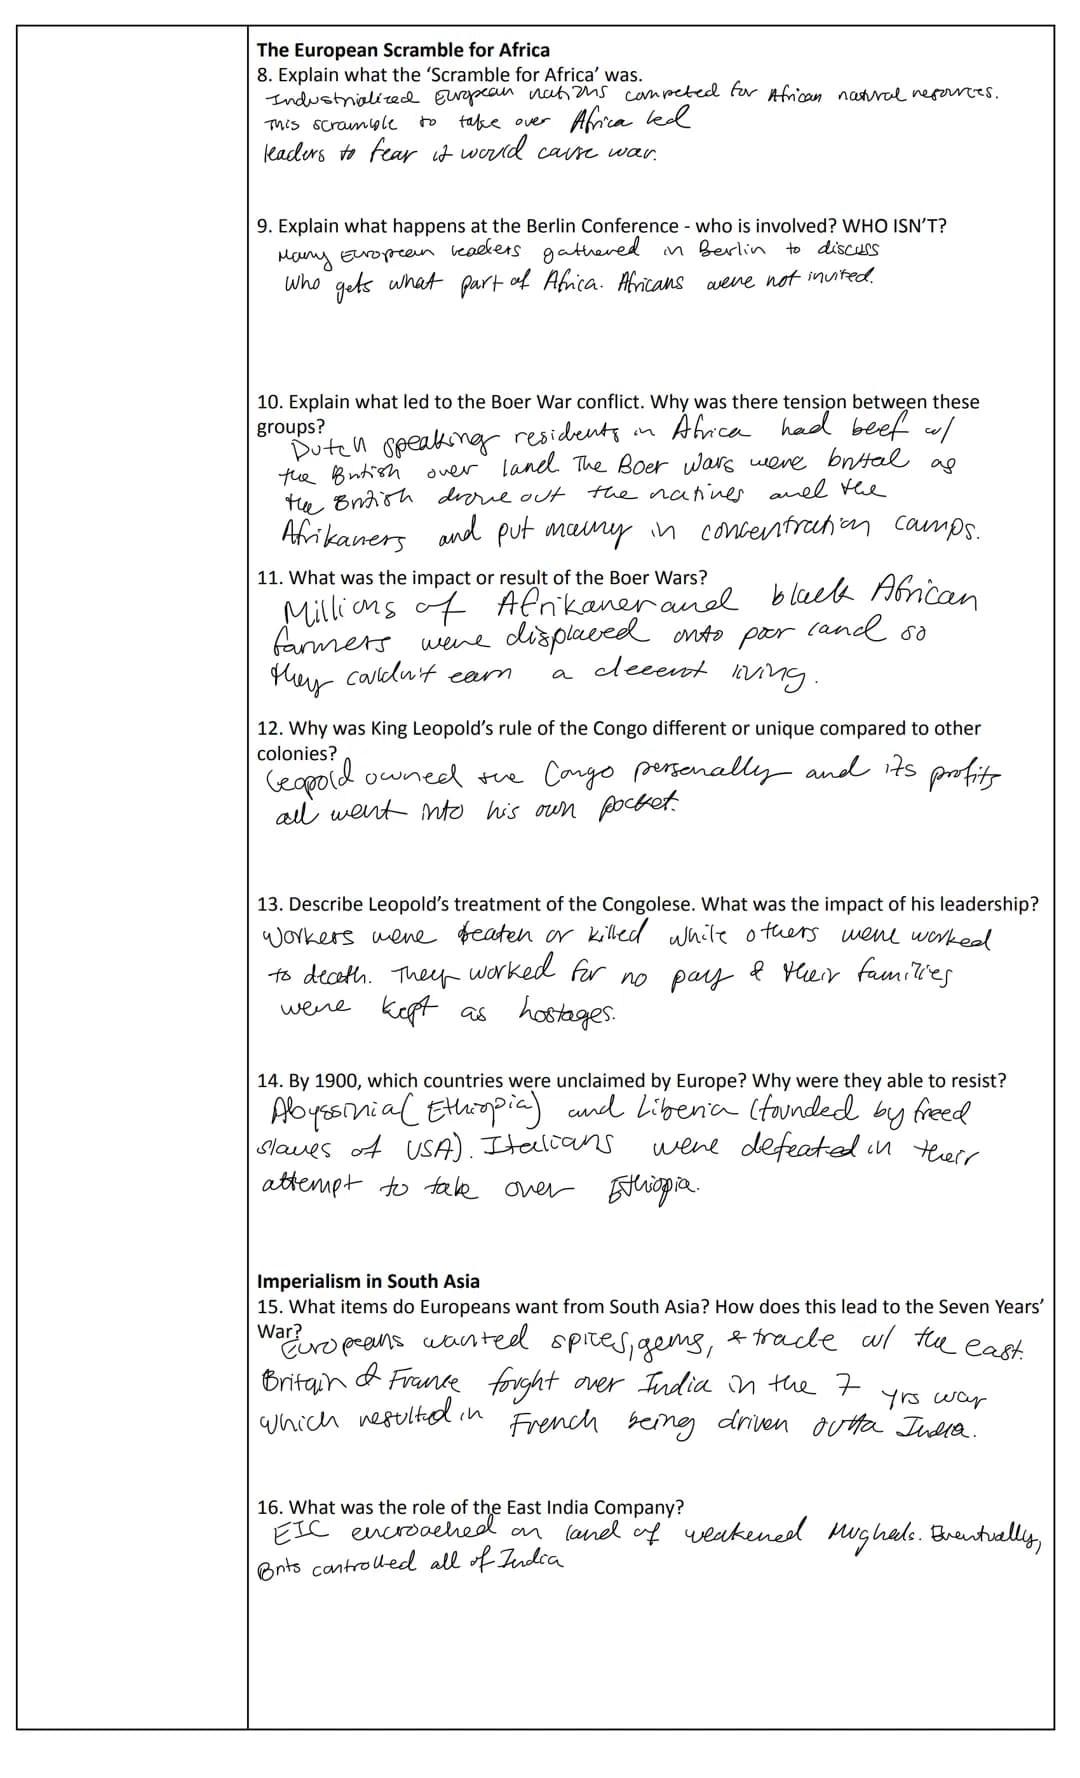 The European Scramble for Africa
8. Explain what the ‘Scramble for Africa’ was.
Industrialized European nations competed for African natural resources.
This scramble to take over Africa led
leaders to fear it would cause war.
9. Explain what happens at the Berlin Conference - who is involved? WHO ISN’T?
Many European leaders gathered in Berlin to discuss
who gets what part of Africa. Africans were not invited.
10. Explain what led to the Boer War conflict. Why was there tension between these
groups?
Dutch speaking residents in Africa had beef w/
the British over land The Boer Wars were brutal as
the British drove out the natives and the
Afrikaners and put many in concentration camps.
11. What was the impact or result of the Boer Wars?
Millions of Afrikaner and black African
farmers were displaced onto poor land so
they couldn't earn a decent living.
12. Why was King Leopold’s rule of the Congo different or unique compared to other
colonies?
Leopold owned the Congo personally and its profits
all went into his own pocket.
13. Describe Leopold’s treatment of the Congolese. What was the impact of his leadership?
Workers were beaten or killed while others were worked
to death. They worked for no pay & their families
were kept as hostages.
14. By 1900, which countries were unclaimed by Europe? Why were they able to resist?
Abyssinia (Ethiopia) and Liberia (founded by freed
slaves of USA). Italians were defeated in their
attempt to take over Ethiopia.
Imperialism in South Asia
15. What items do Europeans want from South Asia? How does this lead to the Seven Years’
War?
Europeans wanted spices, gems, & trade w/ the east.
Britain & France fought over India in the 7 yrs war
which resulted in French being driven outta India.
16. What was the role of the East India Company?
EIC encroached on land of weakened Mughals. Eventually,
Brits controlled all of India